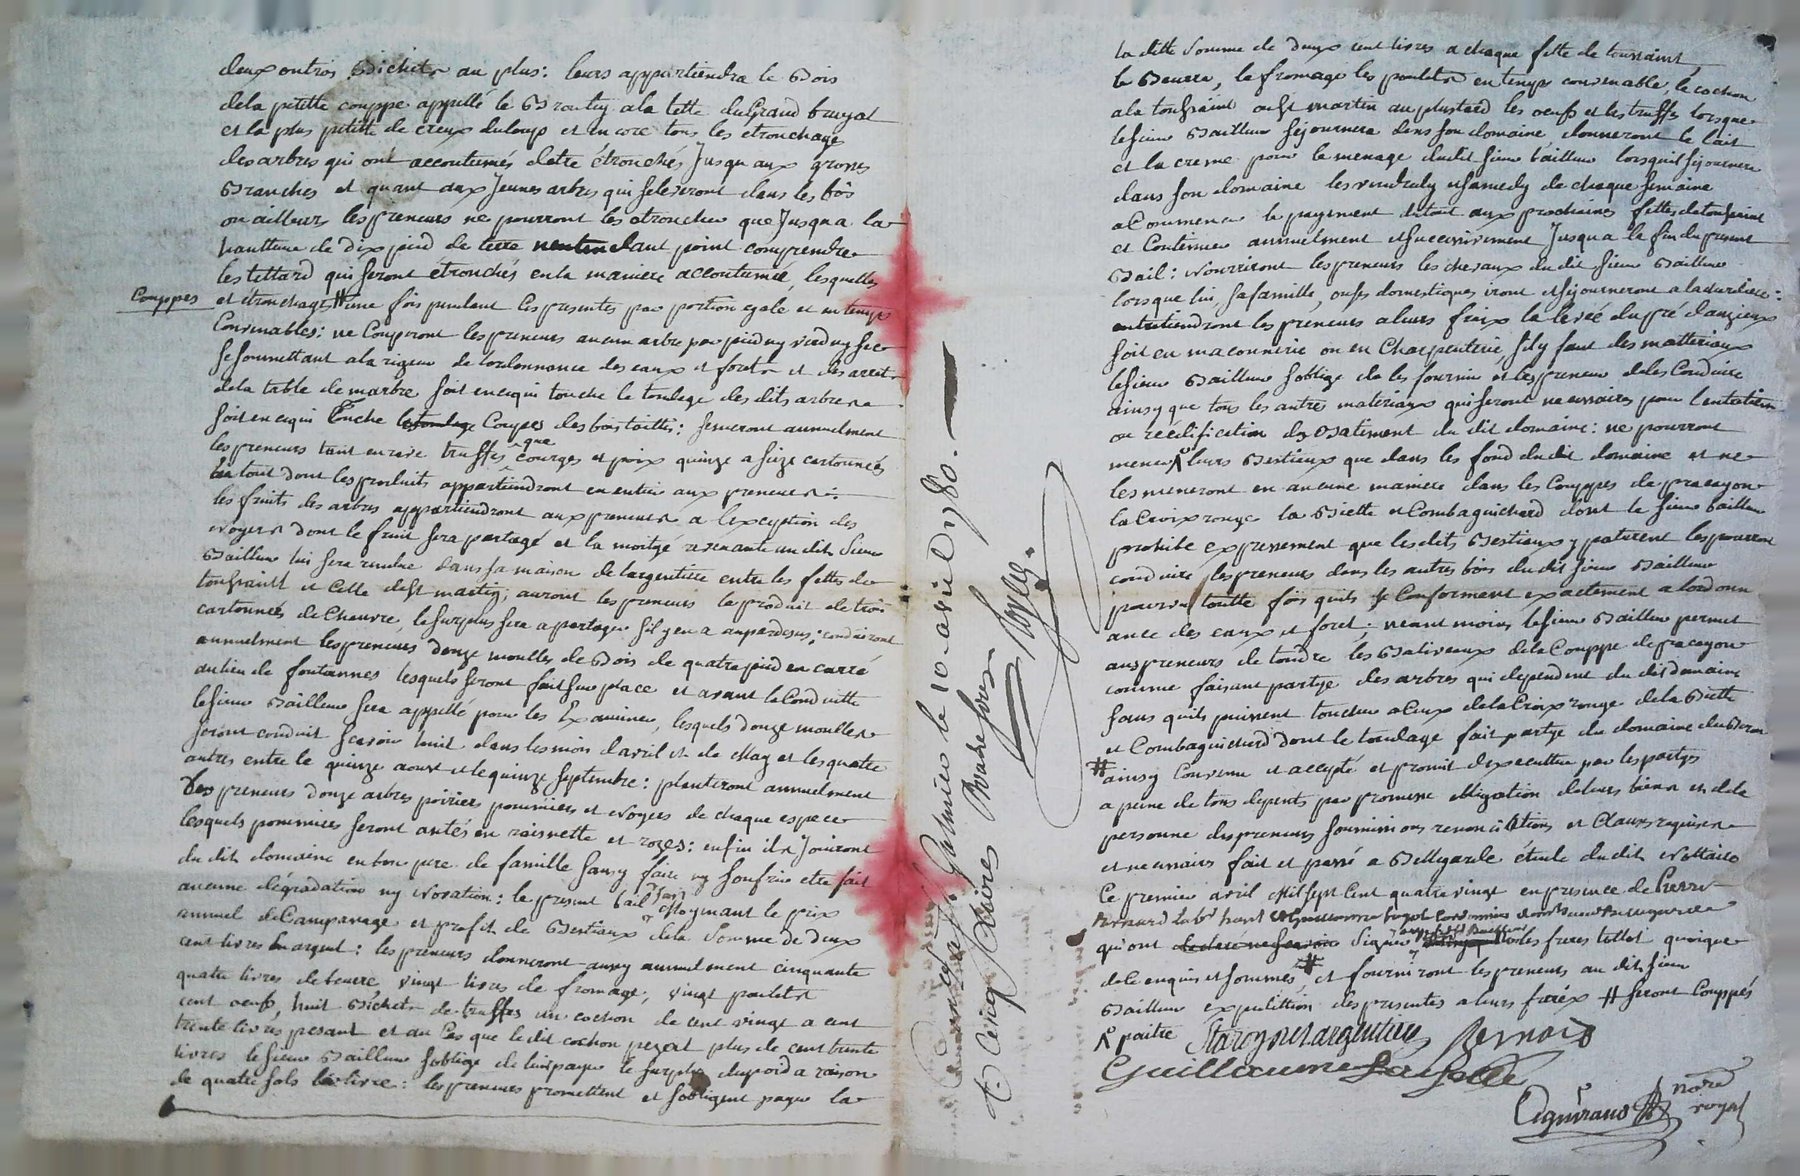 deux outres Bichets au plus : leurs appartiendra le Bois
dela petitte couppe appellé le Broutey ala tette du Grand bruyat
et la plus petitte de creux duloup et encore tous les etronchages
des arbres qui ont accoutumés detre étronchés Jusqu aux grosses
Branches et quant aux Jeunes arbres qui seleveront dans les bois
ou ailleurs les preneurs ne pourront les etroncher que Jusqua la
hautteur de dix pied de terre dant point comprendre
les tettard qui seront étronchés en la maniere accoutumée, lesquelles
Couppes et étronchage # une fois pendant les presentes par portion egale et en temps
Convenables : ne Couperont les preneurs aucun arbre par pied ny verd ny sec
se soumettant ala rigueur de lordonnance des eaux et forets et des arrets
dela table de marbre soit en ce qui touche le tondage des dits arbres
soit en ce qui Touche Coupes des bois taillis : semeront annuelment
les preneurs tant en rave truffes que courges et poix quinze a seize cartonnées
en tout dont les produits appartiendront en entier aux preneurs :
les fruits des arbres appartiendront aux preneurs a lexception des
noyers dont le fruit sera partagé et la moitgé revenante au dit Sieur
Bailleur lui sera rendue dans sa maison de largentiere entre les fettes de
toussaint et celle de st martin ; auront les preneurs le produit de trois
cartonnées de Chenvre, le surplus sera a partager sil y en a au pardessus ; conduiront
annuelment les preneurs douze moulles de Bois de quatre pied en carré
au lieu de fontannes lesquels seront fait sur place et avant la Conduitte
le sieur Bailleur sera appellé pour les Examiner, lesquels douze moulles
seront conduit scavoir huit dans les mois davril et de May et les quatre
autres entre le quinze aoust et le quinze septembre : planteront annuelment
les preneurs douze arbres poiriers pommiers et noyers de chaque espece
lesquels pommiers seront antés en raisnette et rozes : enfin ils Jouiront
du dit domaine en bon pere de famille sans y faire ny souffrir etre fait
aucune dégradation ny novation : le present bail fait Moyenant le prix
annuel de Campanage et profit de Bestiaux dela Somme de deux
cent livres en argent : les preneurs donneront aussy annuelment cinquante
quatre livres de beurre, vingt livres de fromage, vingt poulets
cent oeufs, huit Bichets de truffes un cochon de cent vingt a cent
trente livres pesant et au Cas que le dit cochon pezat plus de cent trente
livres le sieur Bailleur soblige de lui payer le surplus du poid a raison
de quatre sols la livre : les preneurs promettent et sobligent payer la
le 10 avril 1780.
la ditte Somme de deux cent livres a chaque fette de toussaint,
le Beurre, le fromage les poulets en temps convenable, le cochon
ala toussaint ou st martin au plustard les oeufs et les truffes lorsque
le sieur Bailleur séjournera dans son domaine donneront le lait
et la creme pour le menage du dit sieur bailleur lorsquil sejournera
dans son domaine les vendredy et samedy de chaque semaine
a Commencer le payement du tout aux prochaines fettes de toussaint
et Continuer annuelment et successivement Jusqua la fin du present
Bail : Nourriront les preneurs les chevaux du dit sieur Bailleur
lorsque lui, sa famille, ou ses domestiques iront et séjourneront
entretiendront les preneurs a leurs frais la levée du pré danzieux
soit en maconnerie ou en Charpenterie, sil y faut des matteriaux
le sieur Bailleur soblige de les fournir et les preneur de les Conduire
ainsy que tous les autres materiaux qui seront necessaires pour lentretien
ou réédification des Batiment du dit domaine : ne pourront
mener ^ leurs Bestiaux que dans les fond du dit domaine et ne
les meneront en aucune maniere dans les Couppes de pracayon
la Croix rouge la Biette et Combaguichard dont le sieur bailleur
prohibe expressement que les dits Bestiaux y paturent les pourront
conduire les preneurs dans les autres bois du dit sieur Bailleur
pourvu toutte fois quils se Conforment exactement a lordonn
ance des eaux et foret ; neant moins le sieur Bailleur permet
aux preneurs de tondre les Baliveaux dela Couppe de pracayon
comme faisant partye des arbres qui dependent du dit domaine
sans quils puissent toucher a Ceux dela Croix rouge dela Biette
et Combaguichard dont le tondage fait partye du domaine
# ainsy Convenu et accepté et promis dexecutter par les partyes
a peine de tous depents par promesse obligation de leurs biens et dela
personne des preneurs soumissions renonciations et Clauses requises
et necessaires fait et passé a Bellegarde étude du dit Nottaire
Ce premier avril Mil sept Cent quatre vingt en presence de Pierre
qu'ont Signé les freres tollot quoique
de ce enquis et sommés, # et fourniront les preneurs au dit sieur
Bailleur expedittion des presentes a leurs fraix # seront Couppés
^ paitre
Bernard
Guillaume
nore
royal